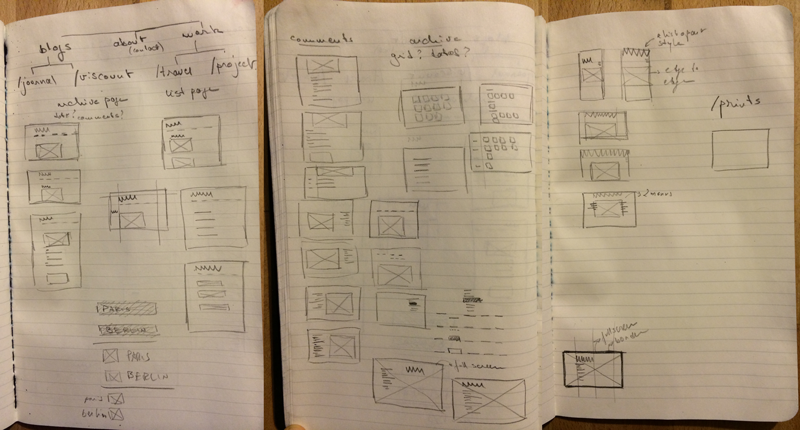 blogs
about
(contact)
work
/journal
/viscount
/travel
/project
archive page
list page
comments?
PARIS
BERLIN
PARIS
BERLIN
paris
berlin
comments
archive
grid? dates?
full screen
style
edge to
edge
/prints
2 menus
full screen